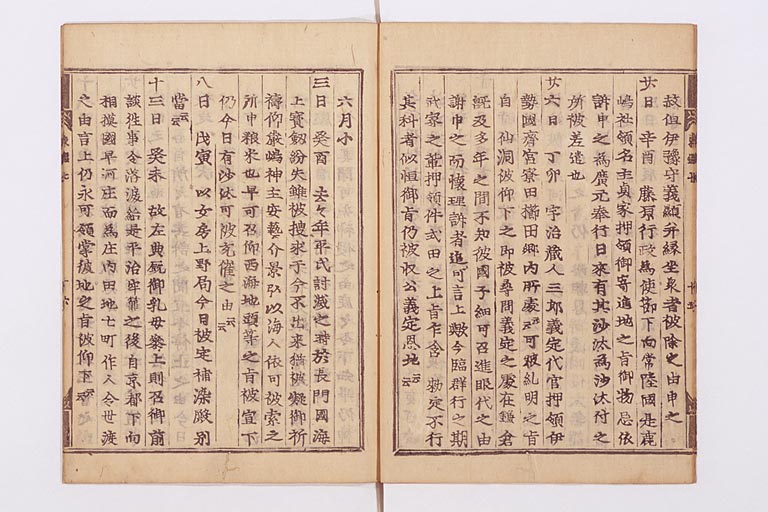 故但伊豫守義顯并縁坐衆者被除之由申之
廿日 辛酉 藤判官行政爲使節下向常陸國是鹿
嶋社領名主貞家押領御寄進地之旨御物忌依
訴申之爲廣元奉行日來有其沙汰爲沙汰付之
所被差遣也
廿六日 丁卯 宇治藏人三郎義定代官押領伊
勢國齋宮寮田櫛田郷內所處云云可被糺明之旨
自仙洞被仰下之即被尋問義定之處在鎌倉
既及多年之間不知彼國子細可召進眼代之由
謝申之而懷理訴者追可言上歟今臨群行之期
武家之輩押領件式田之上旨乍含勅定不行
其科者似恒御旨仍被收公義定恩地云云
六月小
三日 癸酉 去々年平氏討滅之時於長門國海
上寳劔紛失雖被搜求于今不出來猶被凝御祈
禱仰嚴嶋神主安藝介景弘以海人依可被索之
所申粮米也早可召仰西海地頭等之旨被宣下
仍今日有沙汰可被充催之由云云
八日 戊寅 以女房上野局今日被定補㴠殿別
當云云
十三日 癸未 故左典厩御乳母摩上則召御前
談往事令落淚給是平治牢籠之後自京都下向
相摸國早河庄而爲庄內田地七町作人令世渡
之由言上仍永可領掌彼地之旨被仰下云云